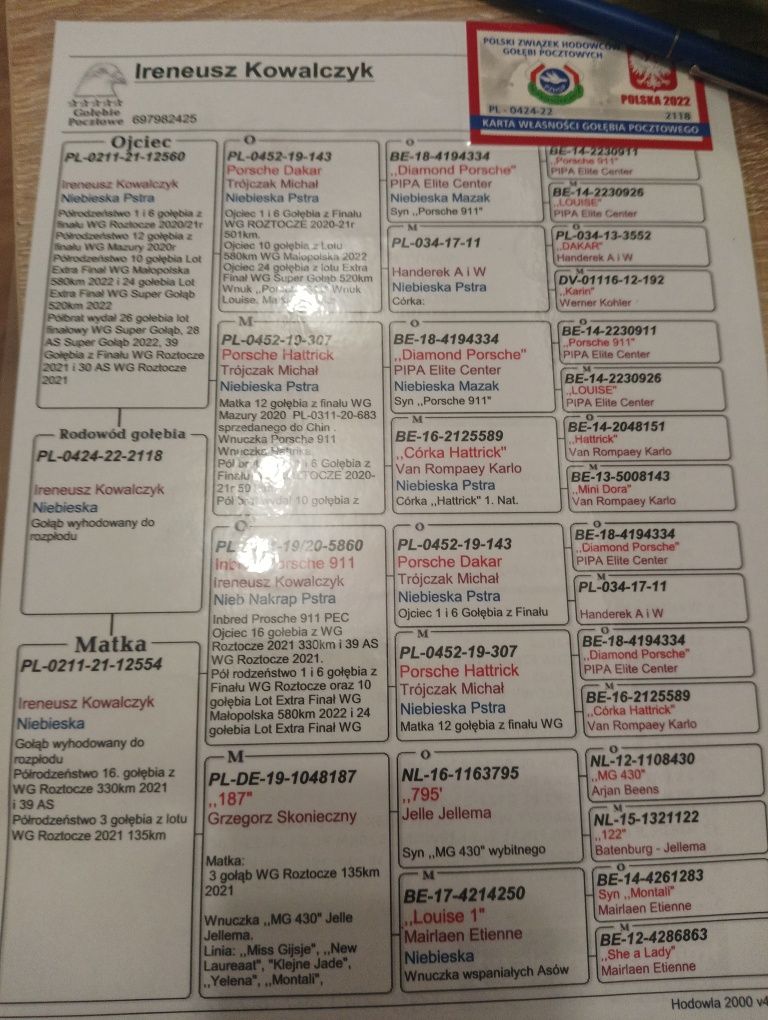 Ireneusz Kowalczyk
Gołębie
Pocztowe
697982425
POLSKI ZWIĄZEK HODOWCÓW
GOŁĘBI POCZTOWYCH
POLSKA 2022
PL - 0424-22
2118
KARTA WŁASNOŚCI GOŁĘBIA POCZTOWEGO
Ojciec
PL-0211-21-12560
Ireneusz Kowalczyk
Niebieska Pstra
Półrodzeństwo 1 i 6 gołębia z
finału WG Roztocze 2020/21r
Półrodzeństwo 12 gołębia z
finału WG Mazury 2020r
Półrodzeństwo 10 gołębia Lot
Extra Finał WG Małopolska
580km 2022 i 24 gołebia Lot
Extra Finał WG Super Gołąb
520km 2022
Półbrat wydał 26 gołebia lot
finałowy WG Super Gołąb, 28
AS Super Gołąb 2022, 39
Gołębia z Finału WG Roztocze
2021 i 30 AS WG Roztocze
2021
Rodowód gołębia
PL-0424-22-2118
Ireneusz Kowalczyk
Niebieska
Gołąb wyhodowany do
rozpłodu
Matka
PL-0211-21-12554
Ireneusz Kowalczyk
Niebieska
Gołąb wyhodowany do
rozpłodu
Półrodzeństwo 16. gołębia z
WG Roztocze 330km 2021
i 39 AS
Półrodzeństwo 3 gołębia z lotu
WG Roztocze 2021 135km
O
PL-0452-19-143
Porsche Dakar
Trójczak Michał
Niebieska Pstra
Ojciec 1 i 6 Gołębia z Finału
WG ROZTOCZE 2020-21r
501km.
Ojciec 10 gołębia z Lotu
580km WG Małopolska 2022
Ojciec 24 gołębia z lotu Extra
Finał WG Super Gołąb 520km
Wnuk Wnuk
Louise.
M
PL-0452-19-307
Porsche Hattrick
Trójczak Michał
Niebieska Pstra
Matka 12 gołębia z finału WG
Mazury 2020 PL-0311-20-683
sprzedanego do Chin .
Wnuczka Porsche 911
Wnuczka
i 6 Gołębia z
ROZTOCZE 2020-
21r
10 gołębia z
O
-19/20-5860
Inbred Porsche 911
Ireneusz Kowalczyk
Nieb Nakrap Pstra
Inbred Prosche 911 PEC
Ojciec 16 gołebia z WG
Roztocze 2021 330km i 39 AS
WG Roztocze 2021.
Pół rodzeństwo 1 i 6 gołębia z
Finału WG Roztocze oraz 10
gołębia Lot Extra Finał WG
Małopolska 580km 2022 i 24
gołebia Lot Extra Finał WG
M
PL-DE-19-1048187
,,187"
Grzegorz Skonieczny
Matka:
3 gołąb WG Roztocze 135km
2021
Wnuczka ,,MG 430" Jelle
Jellema.
Linia: ,,Miss Gijsje", ,,New
Laureaat", "Klejne Jade",
,,Yelena", ,,Montali",
O
BE-18-4194334
,,Diamond Porsche"
PIPA Elite Center
Niebieska Mazak
Syn ,,Porsche 911"
M
PL-034-17-11
Handerek A i W
Niebieska Pstra
Córka:
O
BE-18-4194334
,,Diamond Porsche"
PIPA Elite Center
Niebieska Mazak
Syn ,,Porsche 911"
M
BE-16-2125589
,,Córka Hattrick"
Van Rompaey Karlo
Niebieska Pstra
Córka ,,Hattrick" 1. Nat.
O
PL-0452-19-143
Porsche Dakar
Trójczak Michał
Niebieska Pstra
Ojciec 1 i 6 Gołębia z Finału
M
PL-0452-19-307
Porsche Hattrick
Trójczak Michał
Niebieska Pstra
Matka 12 gołębia z finału WG
O
NL-16-1163795
,,795'
Jelle Jellema
Syn ,,MG 430" wybitnego
M
BE-17-4214250
,,Louise 1"
Mairlaen Etienne
Niebieska
Wnuczka wspaniałych Asów
BE-14-2230911
,,Porsche 911"
PIPA Elite Center
M
BE-14-2230926
,,LOUISE"
PIPA Elite Center
O
PL-034-13-3552
,,DAKAR"
Handerek A i W
M
DV-01116-12-192
,,Karin"
Werner Kohler
O
BE-14-2230911
,,Porsche 911"
PIPA Elite Center
M
BE-14-2230926
,,LOUISE"
PIPA Elite Center
O
BE-14-2048151
,,Hattrick"
Van Rompaey Karlo
M
BE-13-5008143
,,Mini Dora"
Van Rompaey Karlo
O
BE-18-4194334
,,Diamond Porsche"
PIPA Elite Center
M
PL-034-17-11
Handerek A i W
O
BE-18-4194334
,,Diamond Porsche"
PIPA Elite Center
M
BE-16-2125589
,,Córka Hattrick"
Van Rompaey Karlo
O
NL-12-1108430
,,MG 430"
Arjan Beens
M
NL-15-1321122
,,122"
Batenburg - Jellema
O
BE-14-4261283
Syn ,,Montali"
Mairlaen Etienne
M
BE-12-4286863
,,She a Lady"
Mairlaen Etienne
Hodowla 2000 v4